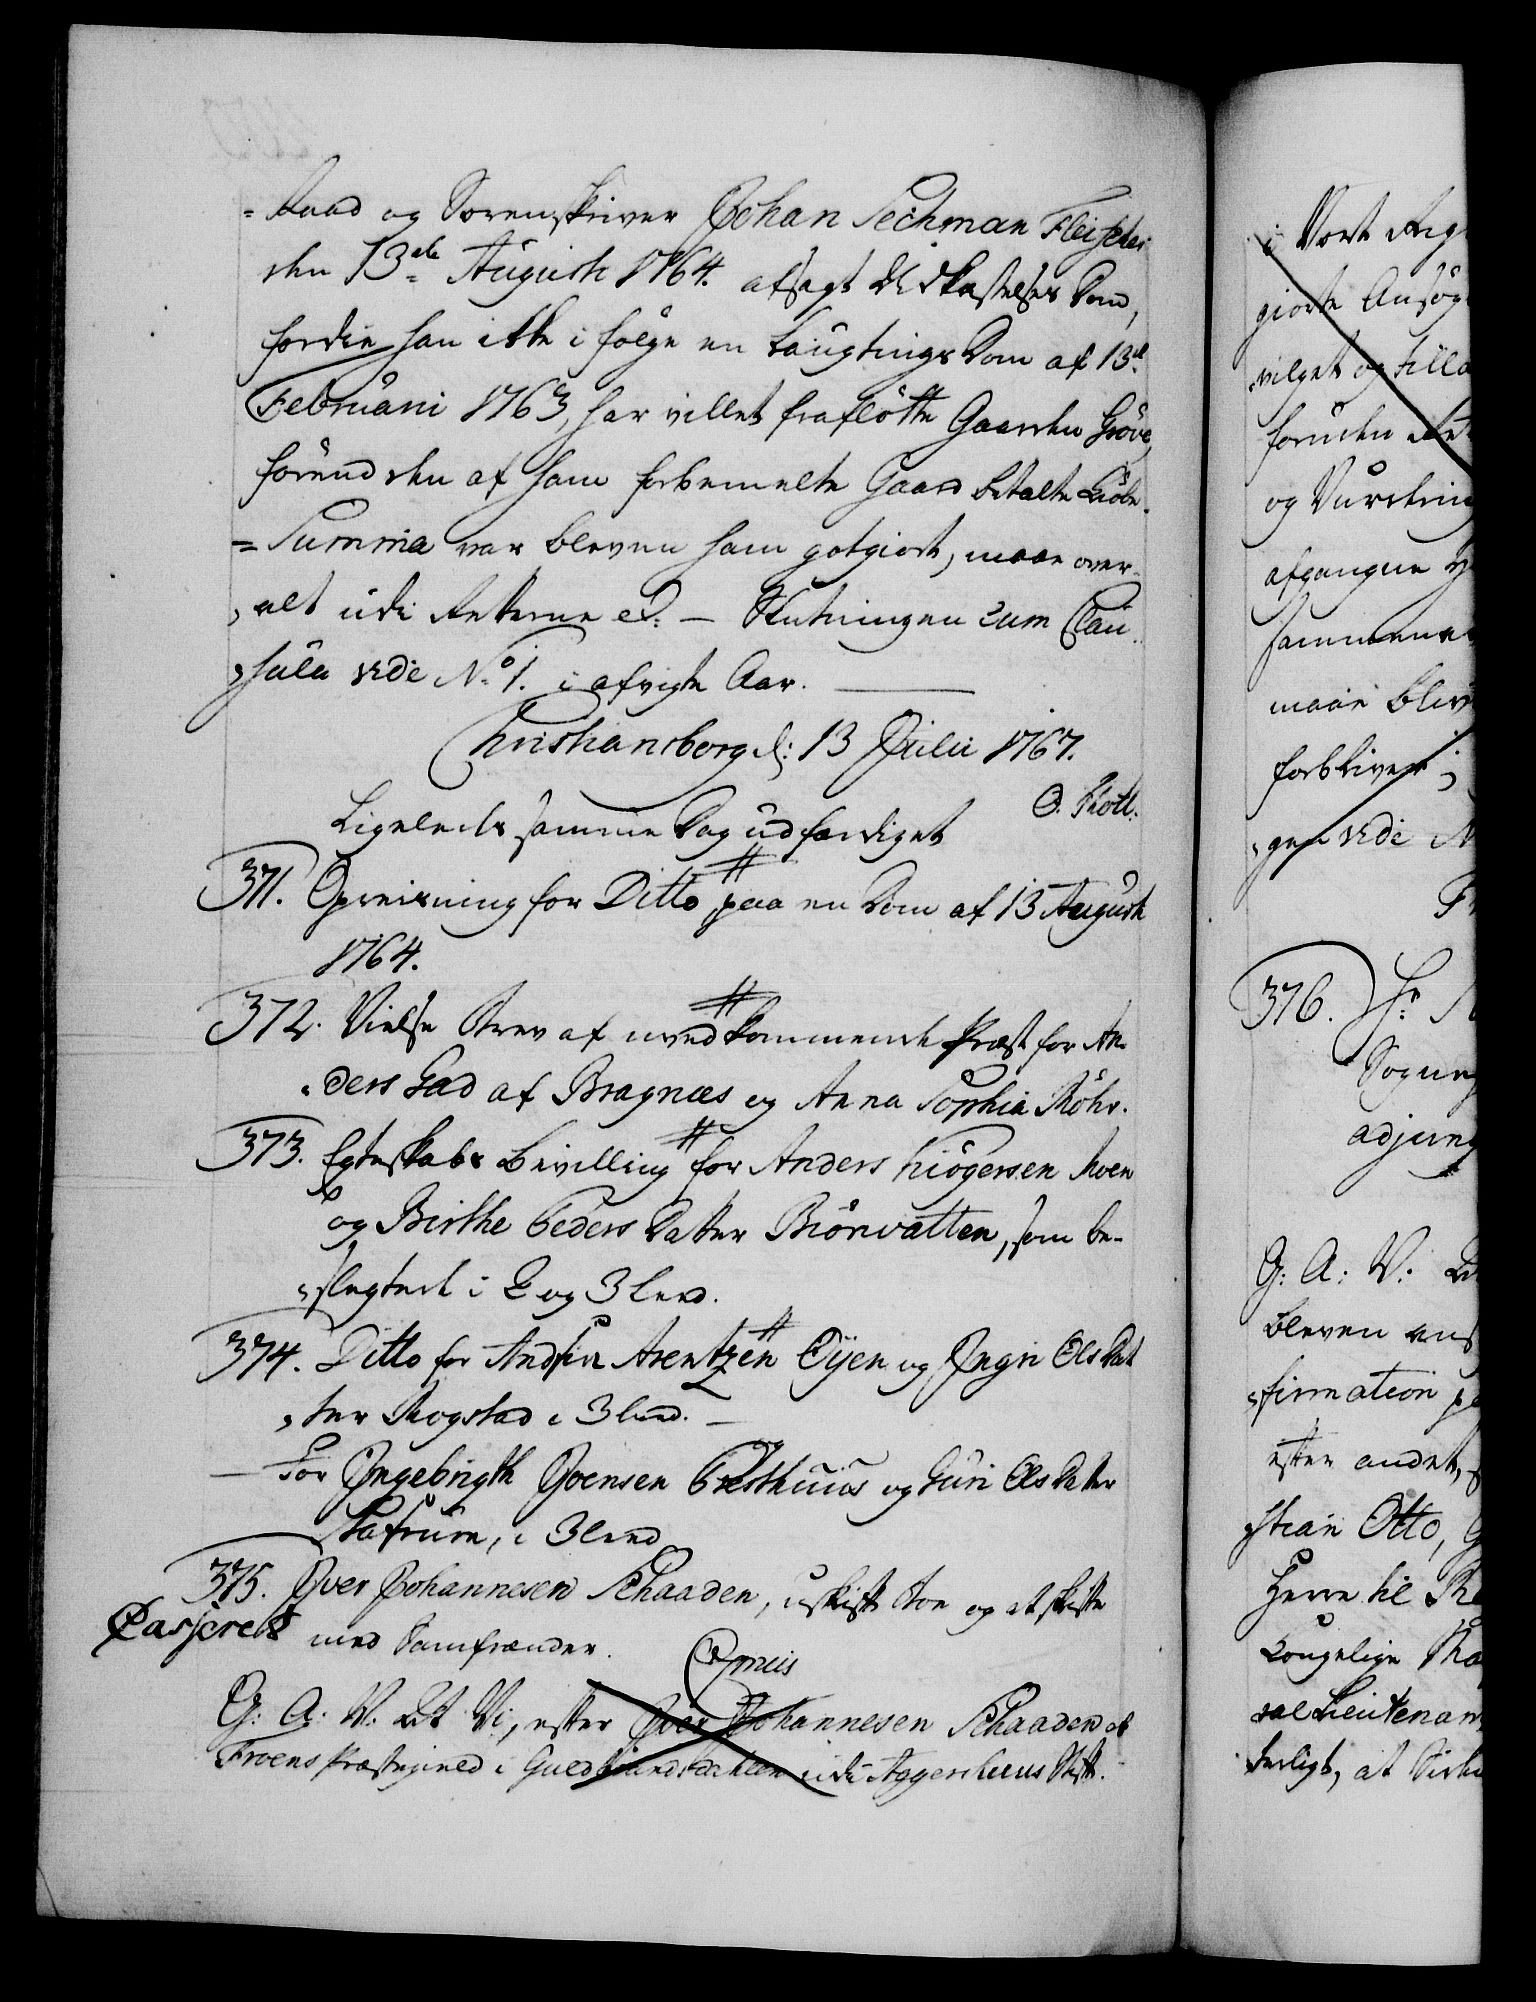 =Raad og Sorenskriver Johan Sechman Fleischer
den 13de Augusti 1764. afsagt Udkastelses Dom,
fordie han ikke i følge en Laugtings Dom af 13de
Februarii 1763, har villet fraflötte Gaarden Gröve,
förend den af ham forbemelte Gaard betalte Kiöbe
=Summa var bleven ham godgiort, maae over-
alt udi Retterne &. — Slutningen cum Clau-
sula vide No 1. i afvigte Aar.
Christiansborg d: 13 Julii 1767.
O. Thott.
Ligeleedes samme Dag udfærdiget
371. Opreisning for Ditto, paa en Dom af 13 Augusti
1764.
372. Vielse Brev af uvedkommende Præst for An-
ders Gad af Bragnæs og Anna Sophia Röhr.
373. Egteskabs Bevilling for Anders Kiögersen Moen
og Birthe Peders Datter Biönvatten, som be-
slegtede i 2 og 3 Leed.
374. Ditto for Anders Arentzen Öÿen og Ingri Ols Dat
ter Rogstad i 3 Leed. —
— For Ingebrigth Joensen Presthuus og Guri Ols Datter
Stafrum, i 3 Leed
375. Iver Johannesen Schaaden, uskiftt Boe og at skifte
Casseret med Samfrænder.
Omnis
G: A: V: At Vi, efter Iver Johannesen Schaaden af
Froens Præstegield i Guldbrandsdahlen udi Aggershuus Stift.
i Vort
giorte Ansög
vilget og tilla
foruden
og Vurdering
afgangne
sammen
maae bliv
forbliver;
gen vide N
Fr
376. Hr
Sogne
adjung
G: A: V:
bleven
firmation
efter andet,
stian Otto,
Herre til
Kongelige
ral Lieutenan
terligt, at